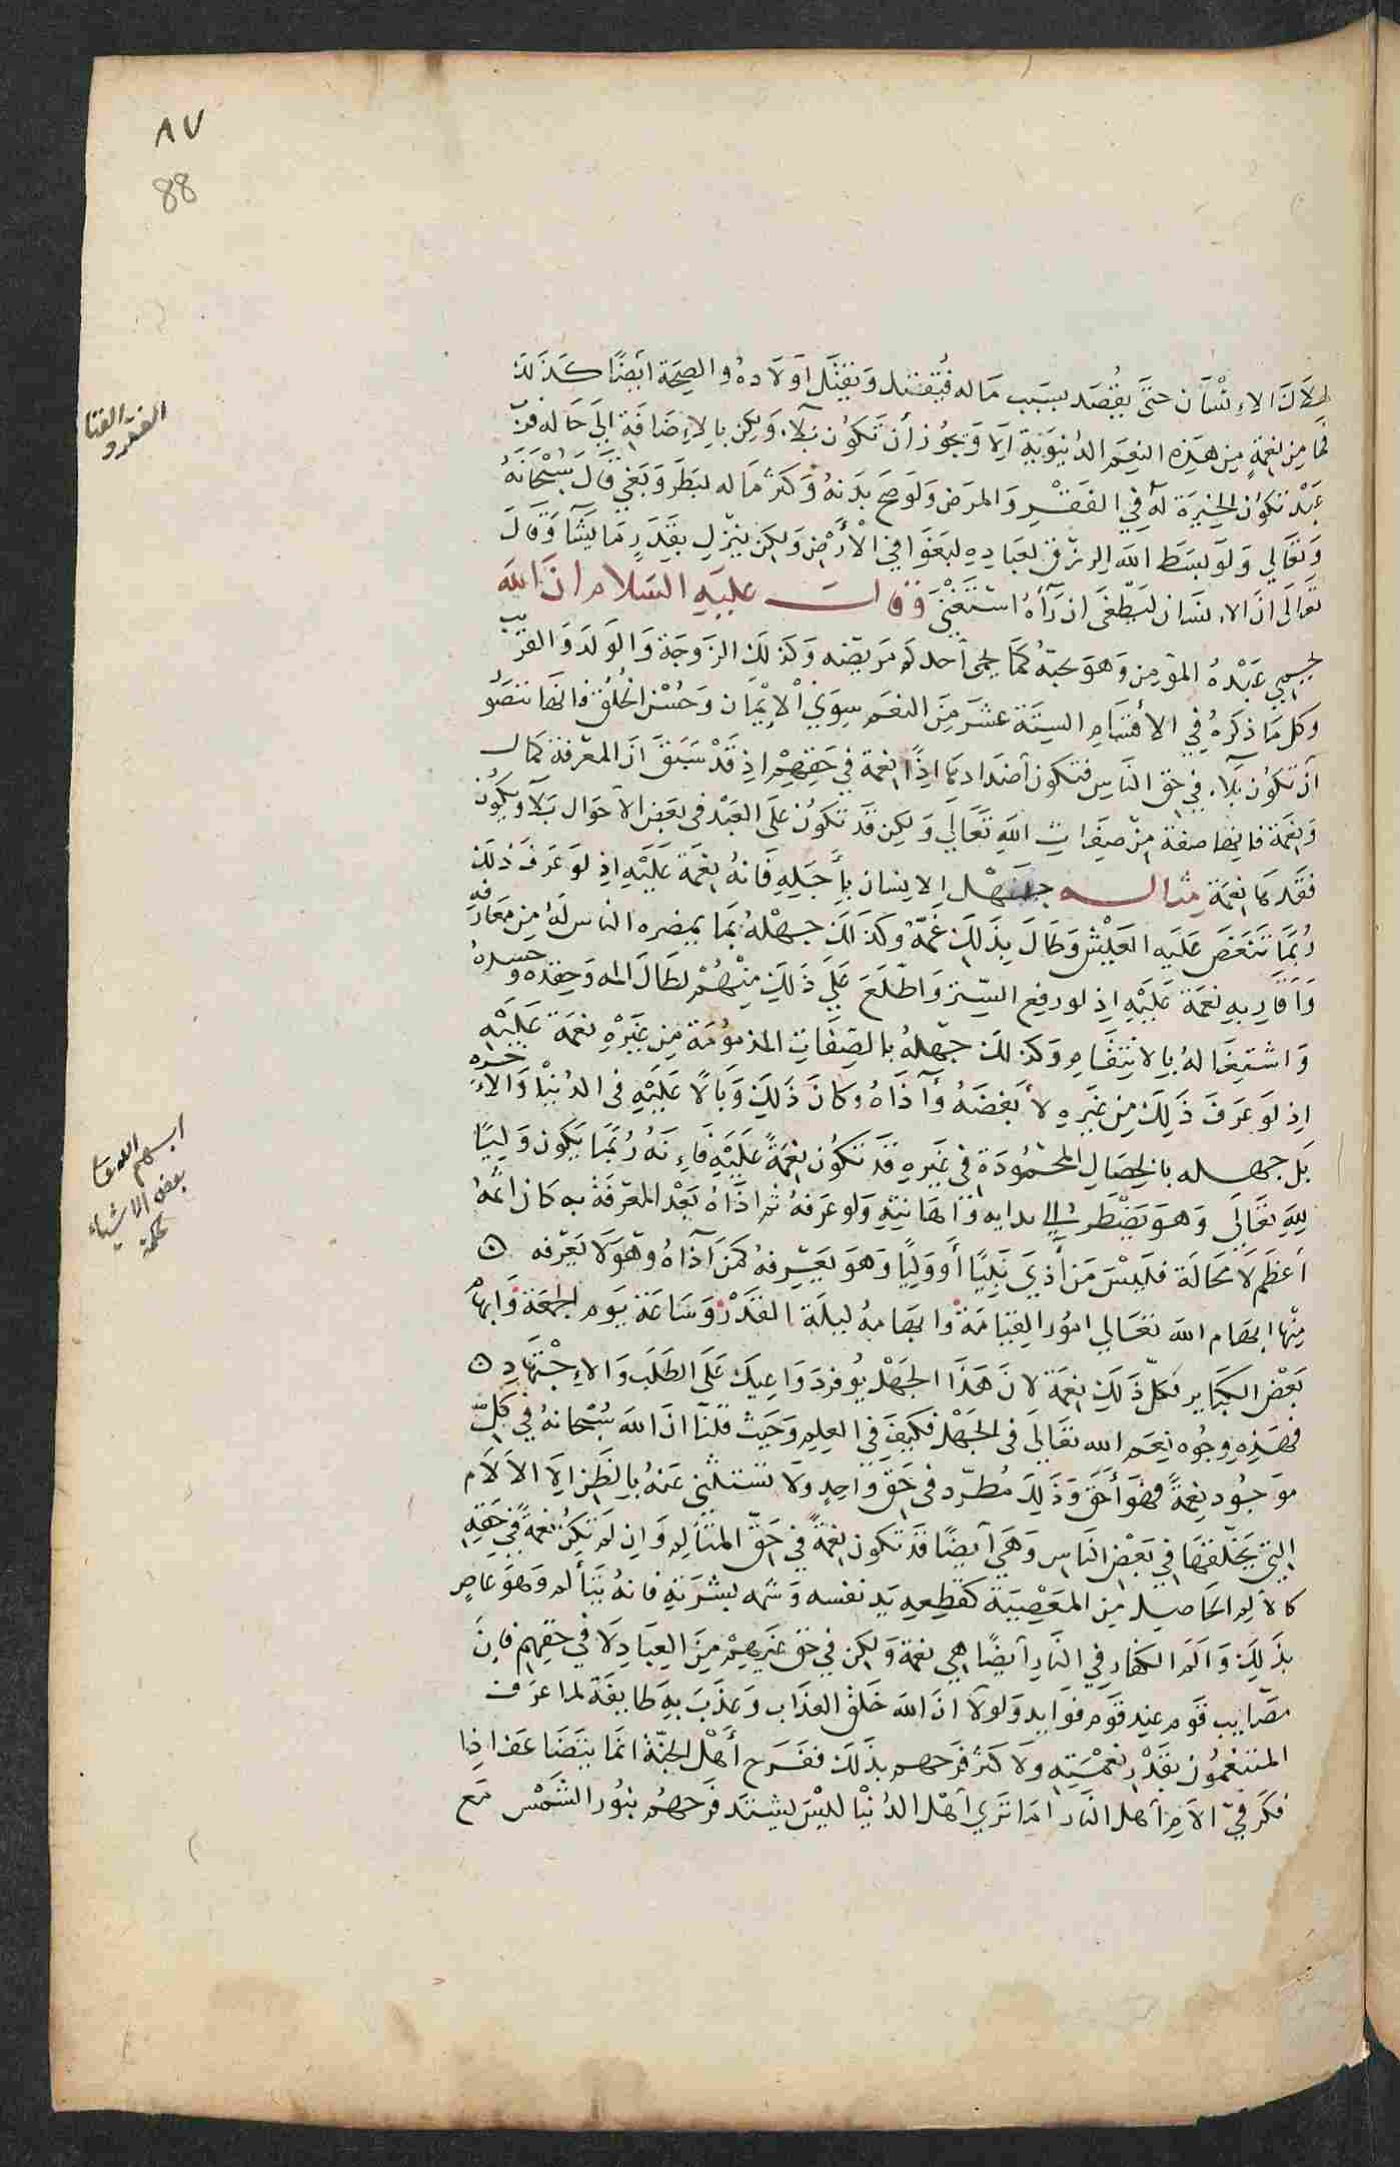 ٨٧
88
لهلاك الانسان حتى يقصد بسبب ماله فيقتل ويقتل اولاده والصحة ايضا كذلك
فما من نعمة من هذه النعم الدنيوية الا ويجوز أن تكون بلاء ولكن بالاضافة الى حاله فرب
عبد تكون الخيرة له في الفقر والمرض ولو صح بدنه وكثر ماله لبطر وبغى قال سبحانه
وتعالي ولو بسط الله الرزق لعباده لبغوا في الأرض ولكن ينزل بقدر ما يشا وقال
تعالى ان الانسان ليطغى ان رآه استغنى وقال عليه السلام ان الله
ليحمي عبده المؤمن وهو يحبه كما يحمى أحدكم مريضه وكذلك الزوجة والولد والقريب
وكل ما ذكره في الأقسام الستة عشر من النعم سوي الايمان وحسن الخلق فانها تتصو
أن تكون بلاء في حق الناس فتكون أضدادها اذًا نعمة في حقهم اذ قد سبق أن المعرفة كمال
ونعمة فانها صفة من صفات الله تعالي ولكن قد تكون على العبد في بعض الاحوال بلاء ويكون
فقدها نعمة مثاله جهل الانسان بأجله فانه نعمة عليه اذ لو عرف ذلك
ربما تنغص عليه العيش وطال بذلك غمه وكذلك جهله بما يضمره الناس له من معارفه
وأقاربه نعمة عليه اذ لو رفع الستر واطلع على ذلك منهم لطال المه وحقده وحسده
واشتغاله بالانتقام وكذلك جهله بالصفات المذمومة من غيره نعمة عليه
اذ لو عرف ذلك من غيره لأبغضه وأذاه وكان ذلك وبالًا عليه في الدنيا والاخره
بل جهله بالخصال المحمودة في غيره قد تكون نعمةً عليه فانه ربما يكون وليًا
لله تعالى وهو يضطر الى ايذايه واهانته ولو عرفه ثم اذاه بعد المعرفة به كان اثمه
أعظم لا محالة فليس من أذي نبيًا أو وليًا وهو يعرفه كمن آذاه وهو لا يعرفه
منها ابهام الله تعالي امور القيامة وابهامه ليلة القدر وساعة يوم الجمعة وابهام
بعض الكباير فكل ذلك نعمة لان هذا الجهل يوفر دواعيك على الطلب والاجتهاد
فهذه وجوه نعم الله تعالى في الجهل فكيف في العلم وحيث قلنا ان الله سبحانه في كل
موجود نعمةً فهو أحق وذلك مطرد في حق واحد ولا نستثني عنه بالظن الا الالام
التي يخلقها في بعض الناس وهي أيضا قد تكون نعمةً في حق المتألم وان لم تكن نعمةً في حقه
كالالم الحاصل من المعصية كقطعه يد نفسه وشمه بشرته فانه يتألم وهو عاص
بذلك وألم الكفار في النار أيضًا هي نعمة ولكن في حق غيرهم من العباد لا في حقهم فان
مصايب قوم عند قوم فوايد ولولا ان الله خلق العذاب وعذب به طايفة لما عرف
المتنعمون بقدر نعمته ولا كثر فرحهم بذلك ففرح أهل الجنة انما يتضاعف اذا
فكر في الام أهل النار اما ترى أهل الدنيا ليس يشتد فرحهم بنور الشمس مع
الفقر والغنا
ابهم الله تعا
بعض الاشياء
حكمة